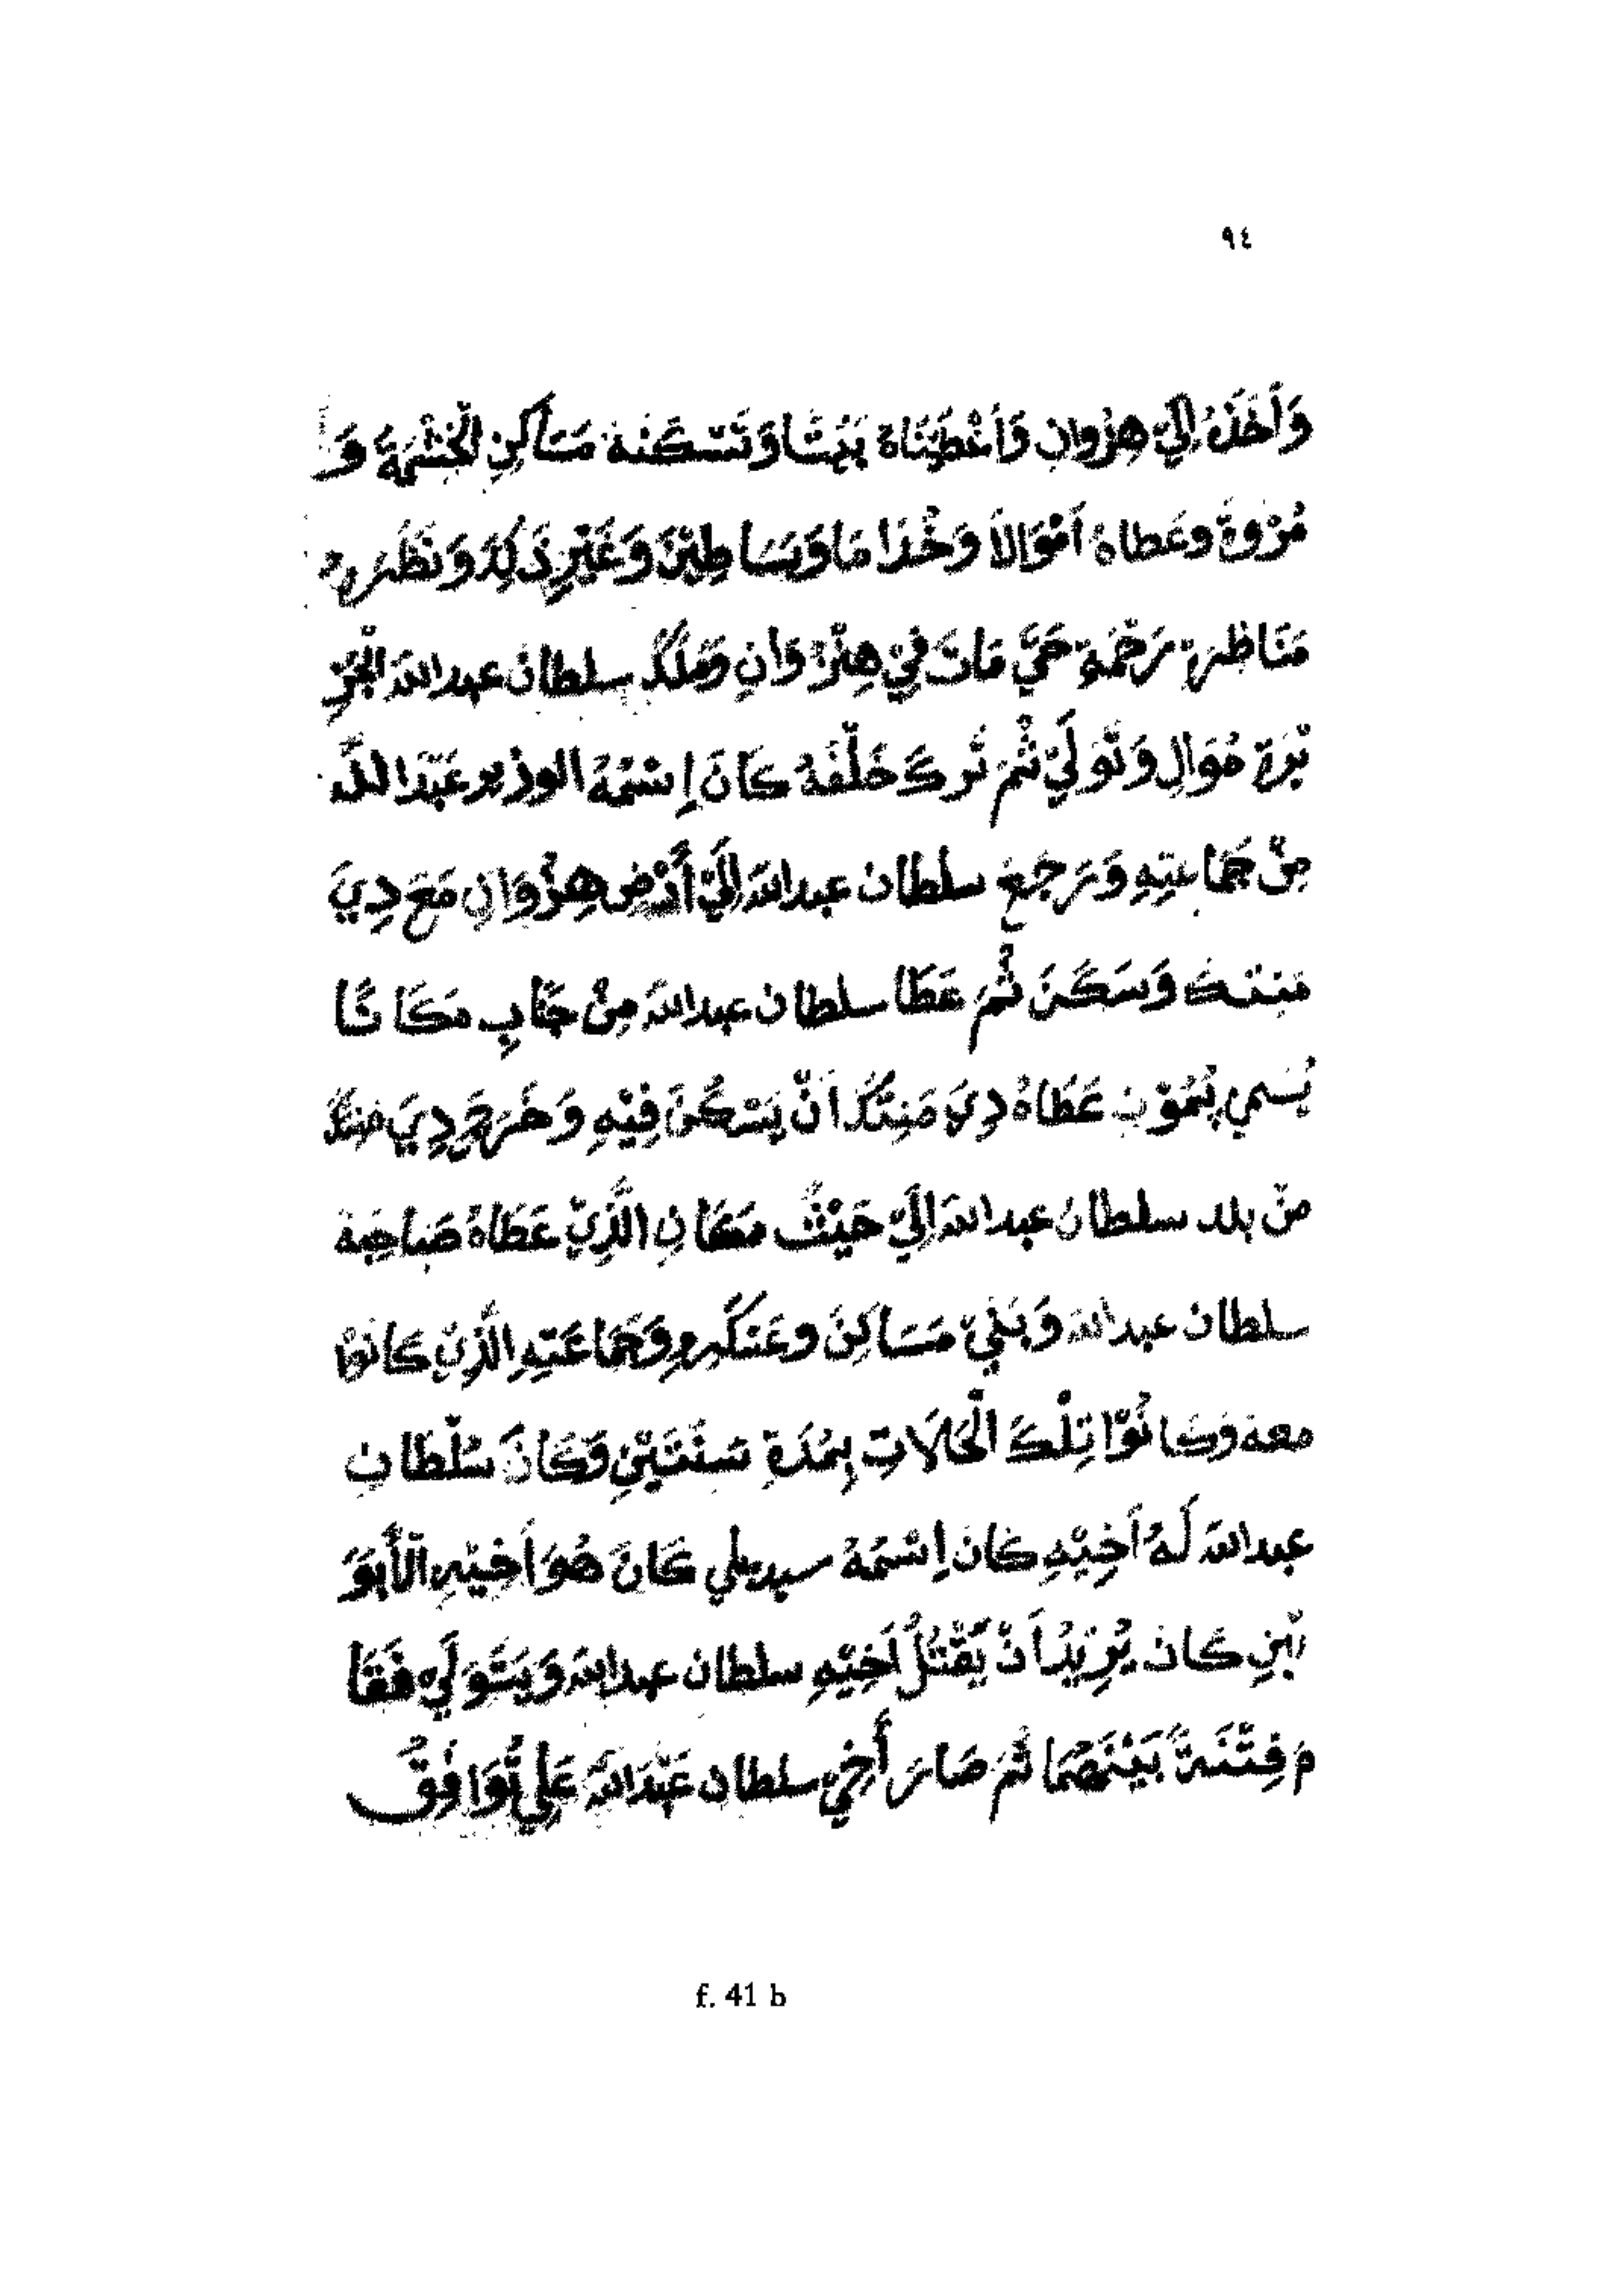 ٩٤
وَاَخَذَهُ اِلَيْ هِزْوانِ وَاَعْطَيْنَاهُ بَيْتًا وَتَسْكُنُهُ مَسَاكِنِ الْحَشْمَةَ وَ
مُرْوَةَ وعَطاهُ اَمْوَالاً وَخُدَّامًا وَبَسَاطِيْنَ وَغَيْرِ ذَلِكَ وَنَظَرَ
مَنَاظِرَ رَحْمَةٍ حَتَّيْ مَاتَ فِيْ هِنْزُوَانِ وَمَلَكَ سلطان عبدالله الْجَزِ
يْرَةَ مُوَالِ وَتَوَلَّيْ ثُمَّ تَركَ خَلْفَهُ كَانَ إِسْمُهُ الوزير عَبْدَ اللّه
مِنْ جَمَاعَتِهِ وَرَجَعَ سلطان عبدالله اِلَيْ أَرْضِ هِزْوَانِ مَعَ دِيَ
مَنتك وَسَكَنَ ثُمَّ عَطَا سلطان عبدالله مِنْ جَنَابِ مَكَانًا
يُسَمي بُمُوْنِ عَطَاهُ دِيَ مَنِتَكُ اَنْ يَسْكُنَ فِيْهِ وَخَرَجَ دِيَ مَنِتَكُ
مِنْ بلد سلطان عبدالله اِلَيْ حَيْثُ مَكَانِ الَّذِيْ عَطَاهُ صَاحِبَهُ
سلطان عبدالله وَبَنَيْ مَسَاكِنَ وعَسْكَرِهِ وَجَمَاعَتِهِ الَّذِيْ كَانُوْا
معه وَكَانُوْا تِلْكَ الْحَالَاتِ بِمُدَةِ سَنَتَيْنِ وَكَانَ سُلْطَانِ
عبدالله لَهُ اَخِيْهِ كَانَ اِسْمُهُ سيدعلي كَانَ هُوَ اَخِيْهِ الْأَبَوَ
يْنِ كَانَ يُرِيْدُ اَنْ يَقْتُلُ اَخِيْهِ سلطان عبدالله وَيَتَوَلَّيْ فَقَا
مَ فِتْنَةً بَيْنَهُمَا ثُمَّ صَارَ أَخِيْ سلطان عَبْدَالله عَلي تُوَافِقُ
f. 41 b